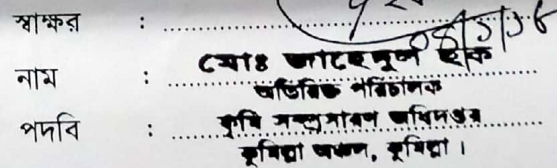 স্বাক্ষর :
নাম : মোঃ জাহেদুল হক
অতিরিক্ত পরিচালক
পদবি : কৃষি সম্প্রসারণ অধিদপ্তর
কুমিল্লা অঞ্চল, কুমিল্লা।